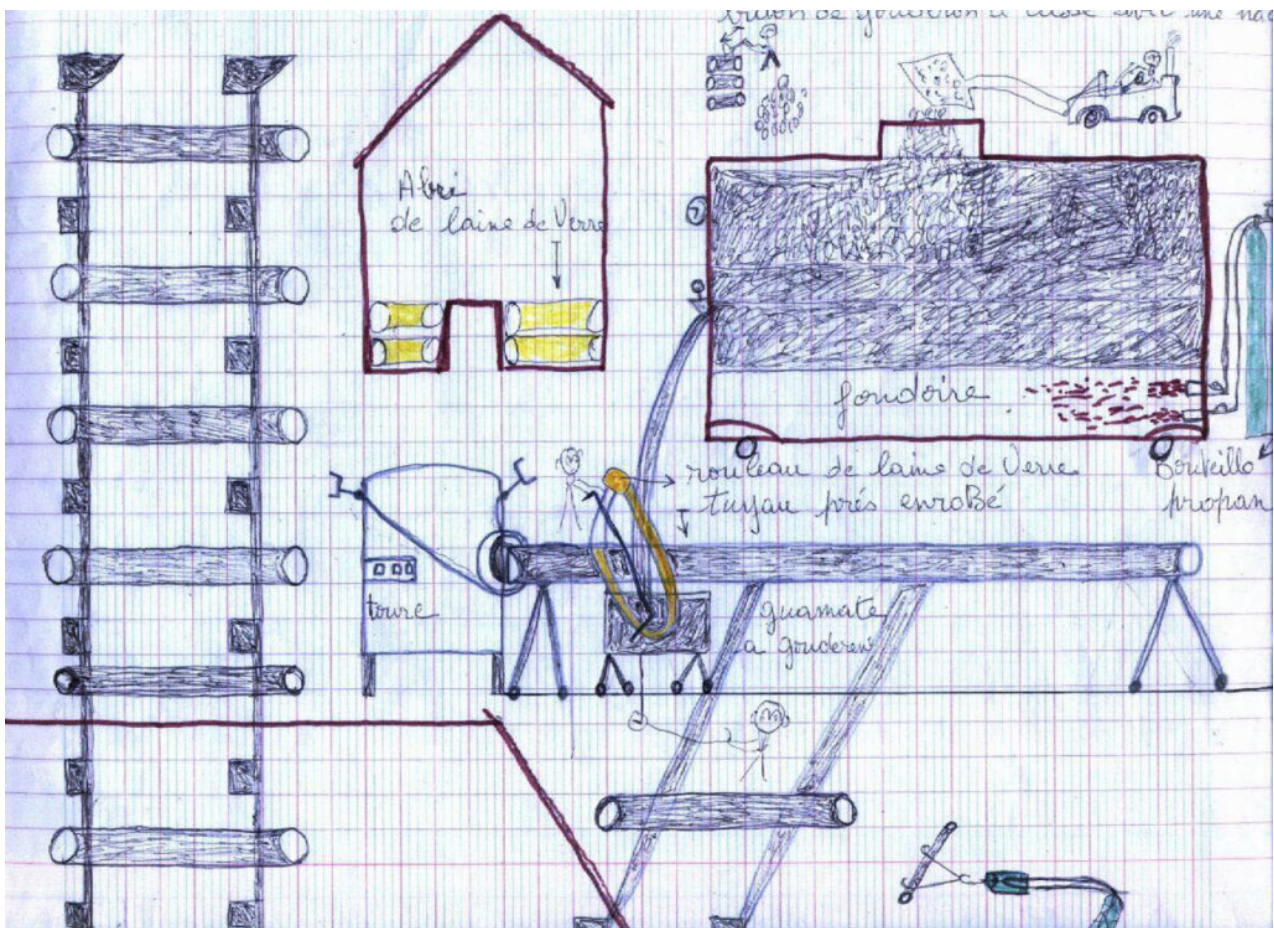 de gouderon a casse avec une
Abri
de laine de Verre
fondoire
rouleau de laine de Verre
tuyau prés enroBé
Bouteille
propan
toure
guamate
a gouderon